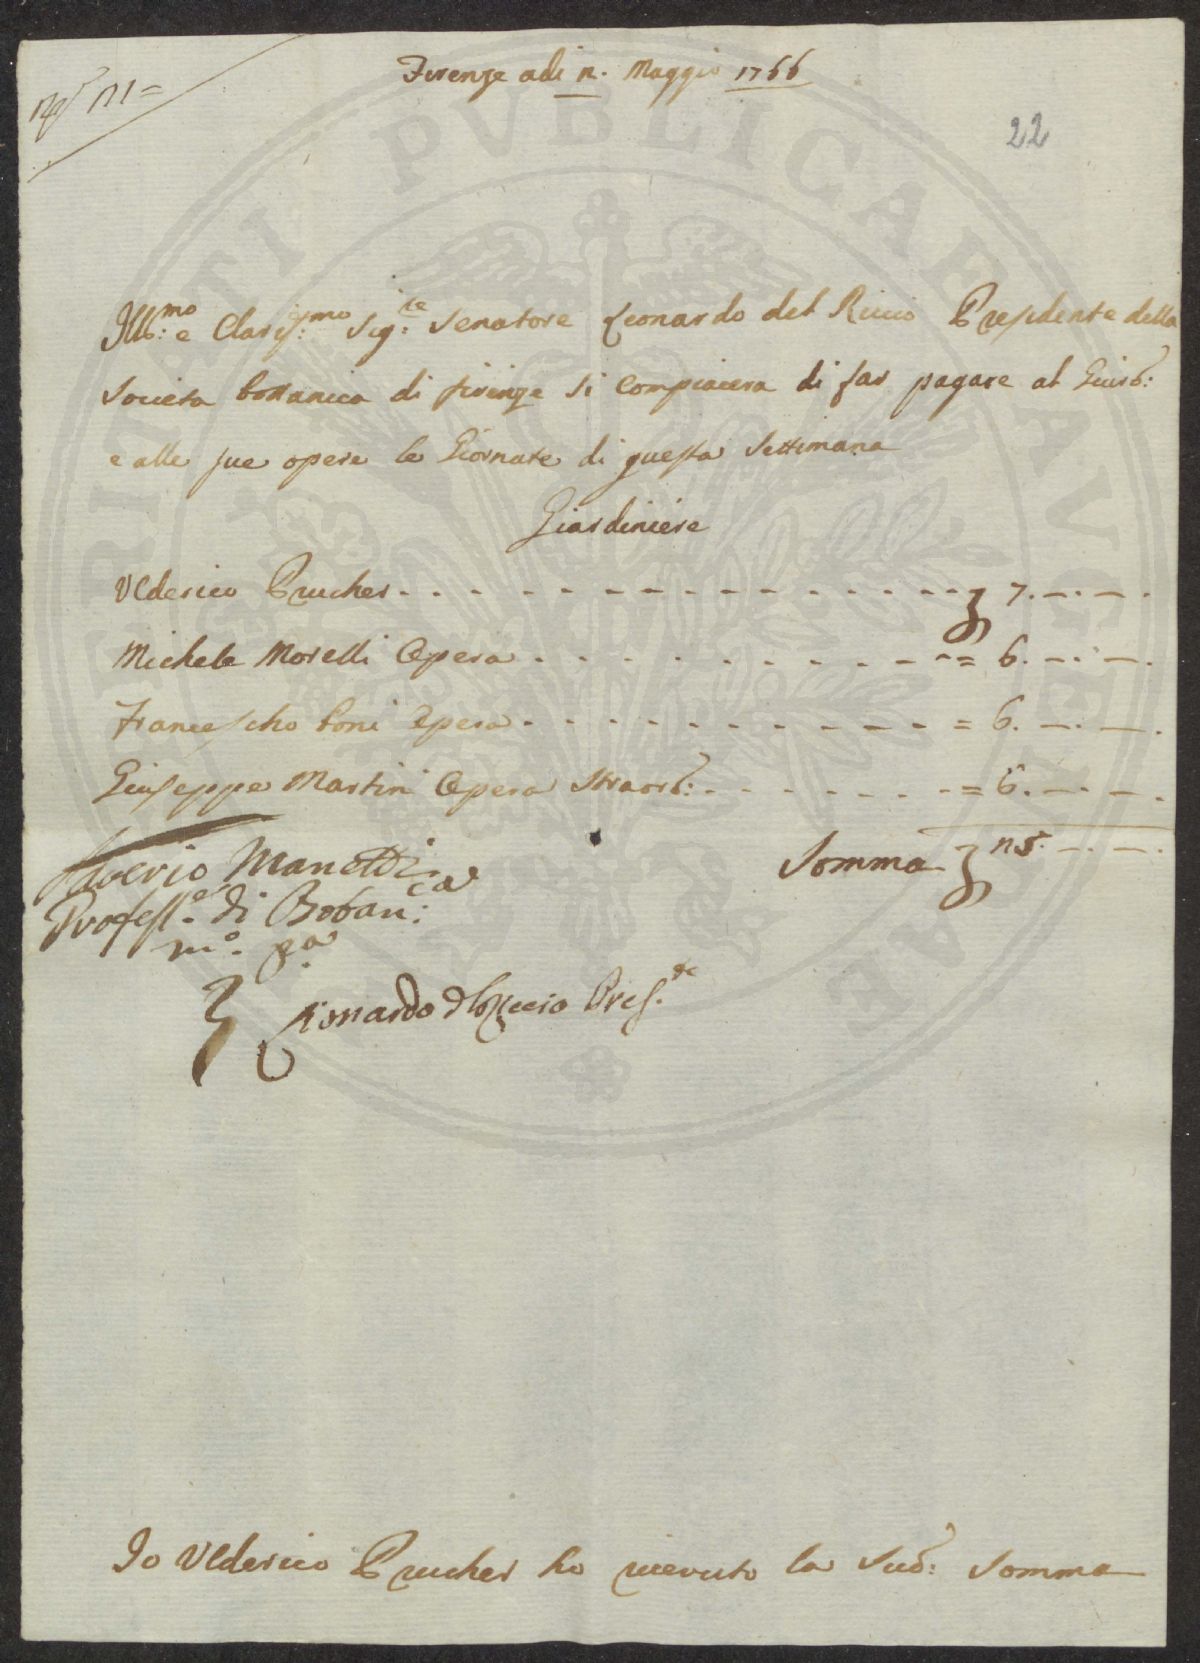 Firenze adi Maggio 1766
22
Ill:mo e Claris:mo Sig:re Senatore Leonardo del Riccio Presidente della
Societa bottanica di firenze si Compiacera di far pagare al Giard:
e alle sue opere le Giornate di questa Settimana
Giardiniere
Ulderico Prucher 7.—.—.
Michele Morelli Opera = 6.—.—.
Francescho boni Opera = 6.—.—.
Giuseppe Martini Opera Straord: = 6.—.—.
Somma 25.—.—.
Saverio Manetti
Profess.e di Botan:ca
m.o p.a
Lionardo del Riccio Pres.te
Io Ulderico Prucher ho ricevuto la Sud: Somma
PROSPERITATI PVBLICAE AVGENDAE